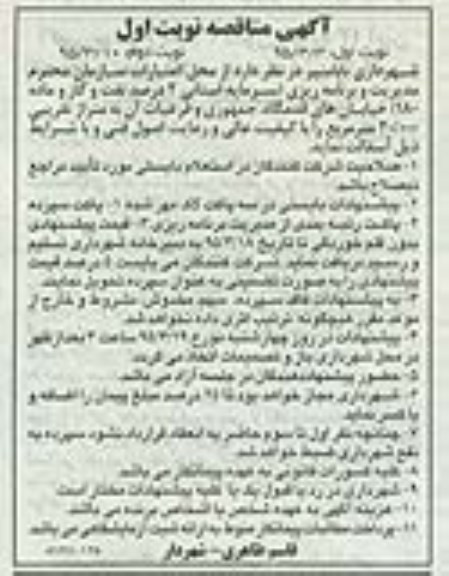 آگهی مناقصه نوبت اول
نوبت اول: ۹۵/۳/۳ نوبت دوم: ۹۵/۳/۱۰
شهرداری باباسر در نظر دارد از محل اعتبارات سازمان محترم
مدیریت و برنامه ریزی (سرمایه استانی ۲ درصد نفت و گاز و ماده
۱۸۰) خیابان های جمهوری و فرعیات آن به متراژ تقریبی
۳۰۰۰۰ مترمربع را با کیفیت عالی و رعایت اصول فنی و با شرایط
ذیل آسفالت نماید.
۱- صلاحیت شرکت کنندگان در استعلام بایستی مورد تأیید مراجع
ذیصلاح باشد.
۲- پیشنهادات بایستی در سه پاکت لاک مهر شده ۱- پاکت سپرده
۲- پاکت رتبه بندی از مدیریت برنامه ریزی ۳- قیمت پیشنهادی
بدون قلم خوردگی تا تاریخ ۹۵/۳/۱۸ به دبیرخانه شهرداری تسلیم
و رسید دریافت نماید. شرکت کنندگان می بایست ۵ درصد قیمت
پیشنهادی را به صورت تضمینی به عنوان سپرده تحویل نمایند.
۳- به پیشنهادات فاقد سپرده، مبهم مخدوش، مشروط و خارج از
موعد مقرر هیچگونه ترتیب اثری داده نخواهد شد.
۴- پیشنهادات در روز چهارشنبه مورخ ۹۵/۳/۱۹ ساعت ۲ بعدازظهر
در محل شهرداری باز و تصمیمات اتخاذ می گردد.
۵- حضور پیشنهاددهندگان در جلسه آزاد می باشد.
۶- شهرداری مجاز خواهد بود تا ۲۵ درصد مبلغ پیمان را اضافه و
یا کسر نماید.
۷- چنانچه نفر اول تا سوم حاضر به انعقاد قرارداد نشود سپرده به
نفع شهرداری ضبط خواهد شد.
۸- کلیه کسورات قانونی به عهده پیمانکار می باشد.
۹- شهرداری در رد یا قبول یک یا کلیه پیشنهادات مختار است.
۱۰- هزینه آگهی به عهده شخص یا اشخاص برنده می باشد.
۱۱- پرداخت مطالبات پیمانکار منوط به ارائه تست آزمایشگاهی می باشد.
قاسم طاهری - شهردار